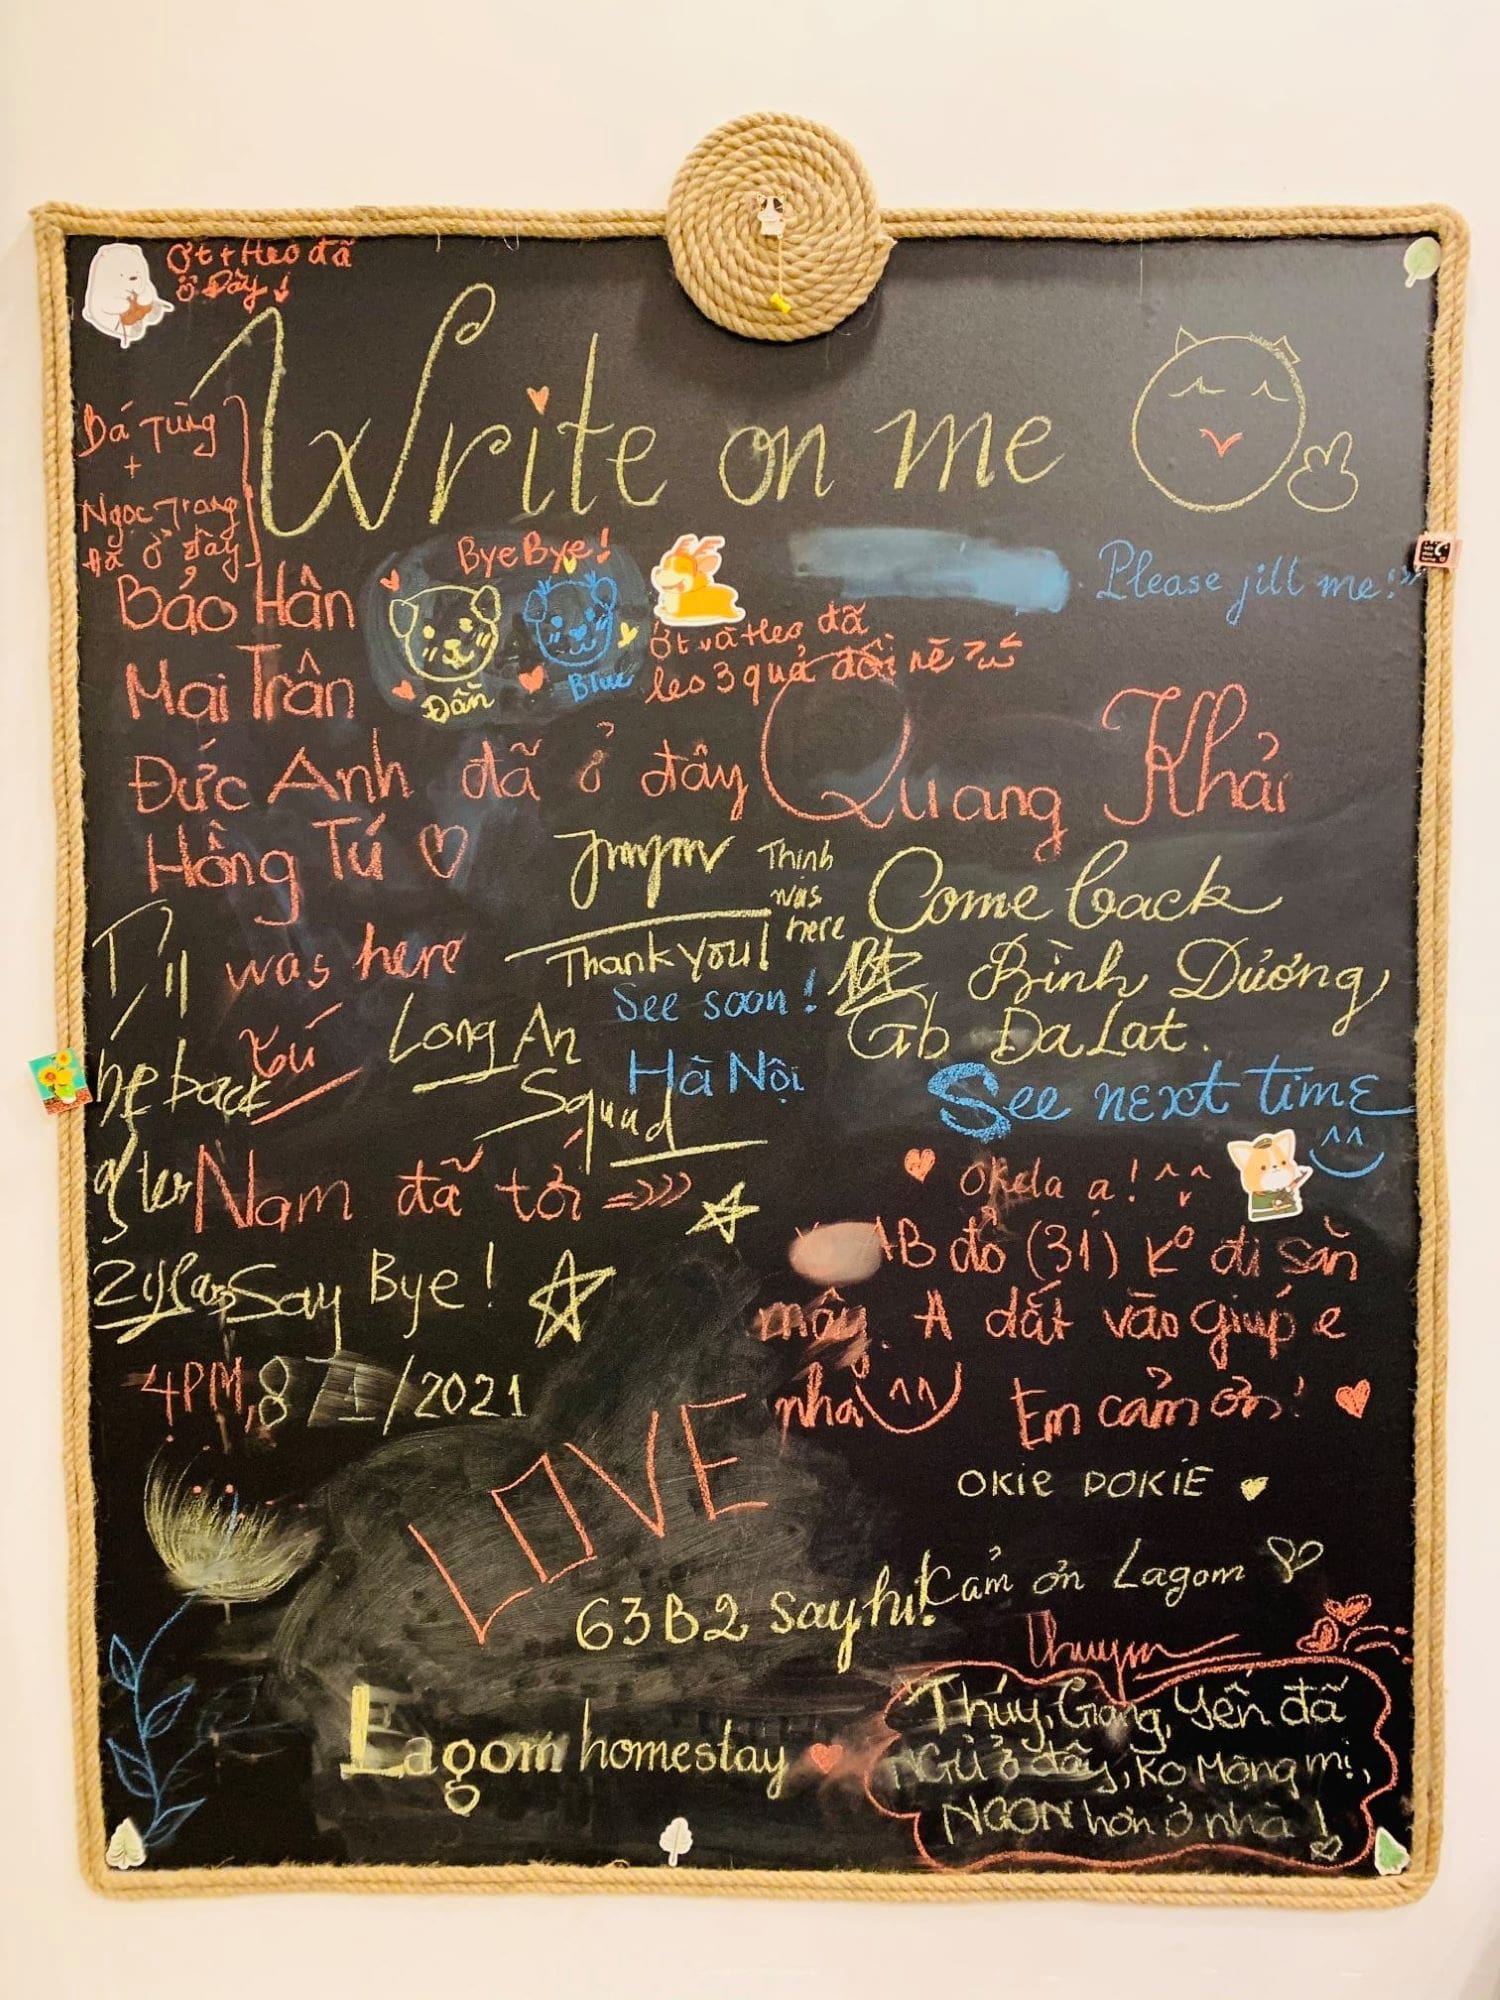 Ớt + Heo đã
ở Đây
Write on me
Bá Tùng
+
Ngọc Trang
đã ở đây
ByeBye!
Please fill me!
Bảo Hân
Mai Trân
Đần
Blue
Ớt và Heo đã
leo 3 quả đồi
Đức Anh đã ở đây
Quang Khải
Hồng Tú
Thịnh
was
here
Come back
I'll
was here
Thank you!
Bình Dương
See soon!
Gb DaLat.
Tú
Long An
Squad
Hà Nội
be back
See next time
^^
after
Nam đã tới
Okela ạ! ^^
AB đồ (31) Kº đi săn
mây. A dắt vào giúp e
nha ^^ Em cảm ơn!
Say Bye!
4PM, 8/1/2021
LOVE
OKIE DOKIE
63B2 say hi!
Cảm ơn Lagom
Lagom homestay
Thúy, Giang, Yến đã
NGủ ở đây, Ko Mộng mị,
NGON hơn ở nhà!